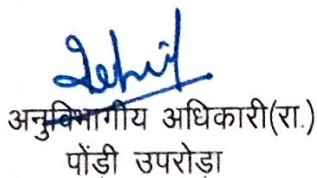 अनुविभागीय अधिकारी(रा.)
पोंड़ी उपरोड़ा